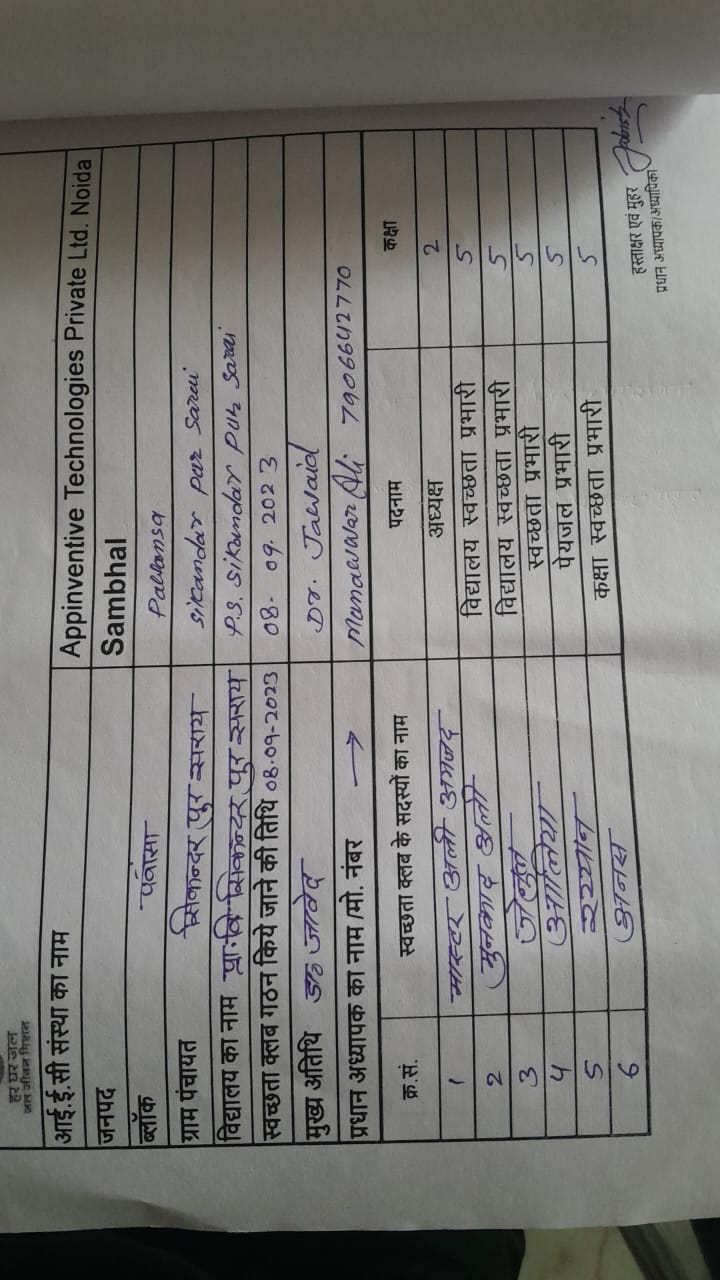 हर घर जल
जल जीवन मिशन
आई.ई.सी संस्था का नाम Appinventive Technologies Private Ltd. Noida
जनपद Sambhal
ब्लॉक पवांसा Pawansa
ग्राम पंचायत सिकन्दर पुर सराय Sikandar pur Sarai
विद्यालय का नाम प्रा.वि. सिकन्दर पुर सराय P.S. Sikandar Pur Sarai
स्वच्छता क्लब गठन किये जाने की तिथि 08.09-2023 08- 09. 2023
मुख्य अतिथि डा० जावेद Dr. Jawaid
प्रधान अध्यापक का नाम /मो. नंबर → Munawwar Ali 7906642770
क्र.सं. स्वच्छता क्लब के सदस्यों का नाम पदनाम कक्षा
1 मास्टर अली अमजद अध्यक्ष 2
2 अली विद्यालय स्वच्छता प्रभारी 5
3 विद्यालय स्वच्छता प्रभारी 5
4 आलिया स्वच्छता प्रभारी 5
5 पेयजल प्रभारी 5
6 अनस कक्षा स्वच्छता प्रभारी 5
हस्ताक्षर एवं मुहर
प्रधान अध्यापक/अध्यापिका